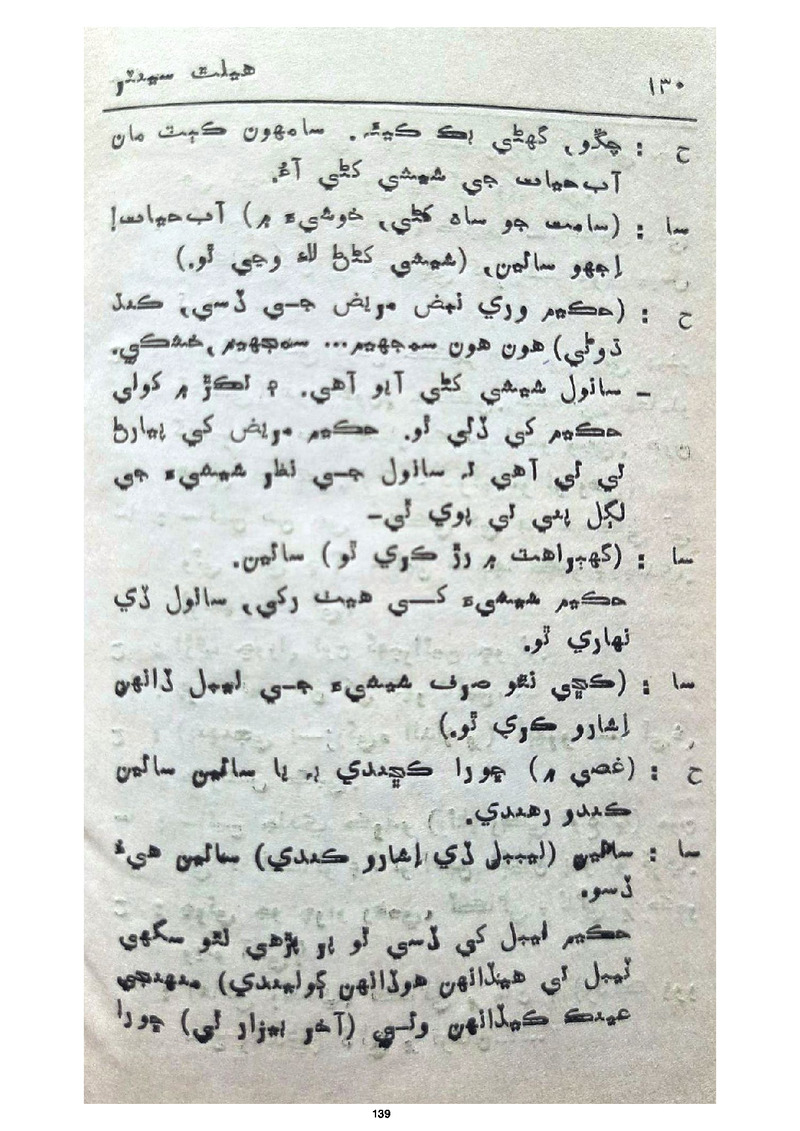 ١٣٠ هيلٿ سينٽر
ح : چڱو، گهڻي بڪ ڪيئه. سامهون ڪٻٽ مان
آب حيات جي شيشي کڻي آءُ.
سا : (سامت جو ساه کڻي، خوشيءَ ۾) آب حيات!
اجهو سائين، (شيشي کڻڻ لاءِ وڃي ٿو.)
ح : (حڪيم وري نبض مريض جي ڏسي، ڪنڌ
ڌوڻي) هون هون سمجهيم... سمجهيم، خشڪي.
– سانول شيشي کڻي آيو آهي. ۽ ٺڪڙ ۾ کولي
حڪيم کي ڏئي ٿو. حڪيم مريض کي پيارڻ
تي ئي آهي ته سانول جي نظر شيشيءَ جي
لڳل پني تي پوي ٿي–
سا : (گهٻراهٽ ۾ رڙ ڪري ٿو) سائين.
حڪيم شيشيءَ کي هيٺ رکي، سانول ڏي
نهاري ٿو.
سا : (ڪڇي نٿو صرف شيشيءَ جي ليبل ڏانهن
اشارو ڪري ٿو.)
ح : (غصي ۾) ڇورا ڪڇندي به يا سائين سائين
ڪندو رهندي.
سا : سائين (ليبل ڏي اشارو ڪندي) سائين هيءُ
ڏسو.
حڪيم ليبل کي ڏسي ٿو پر پڙهي نٿو سگهي
ليبل تي هيڏانهن هوڏانهن ڳوليندي) منهنجي
عينڪ ڪيڏانهن وئي (آخر بيزار ٿي) ڇورا
139